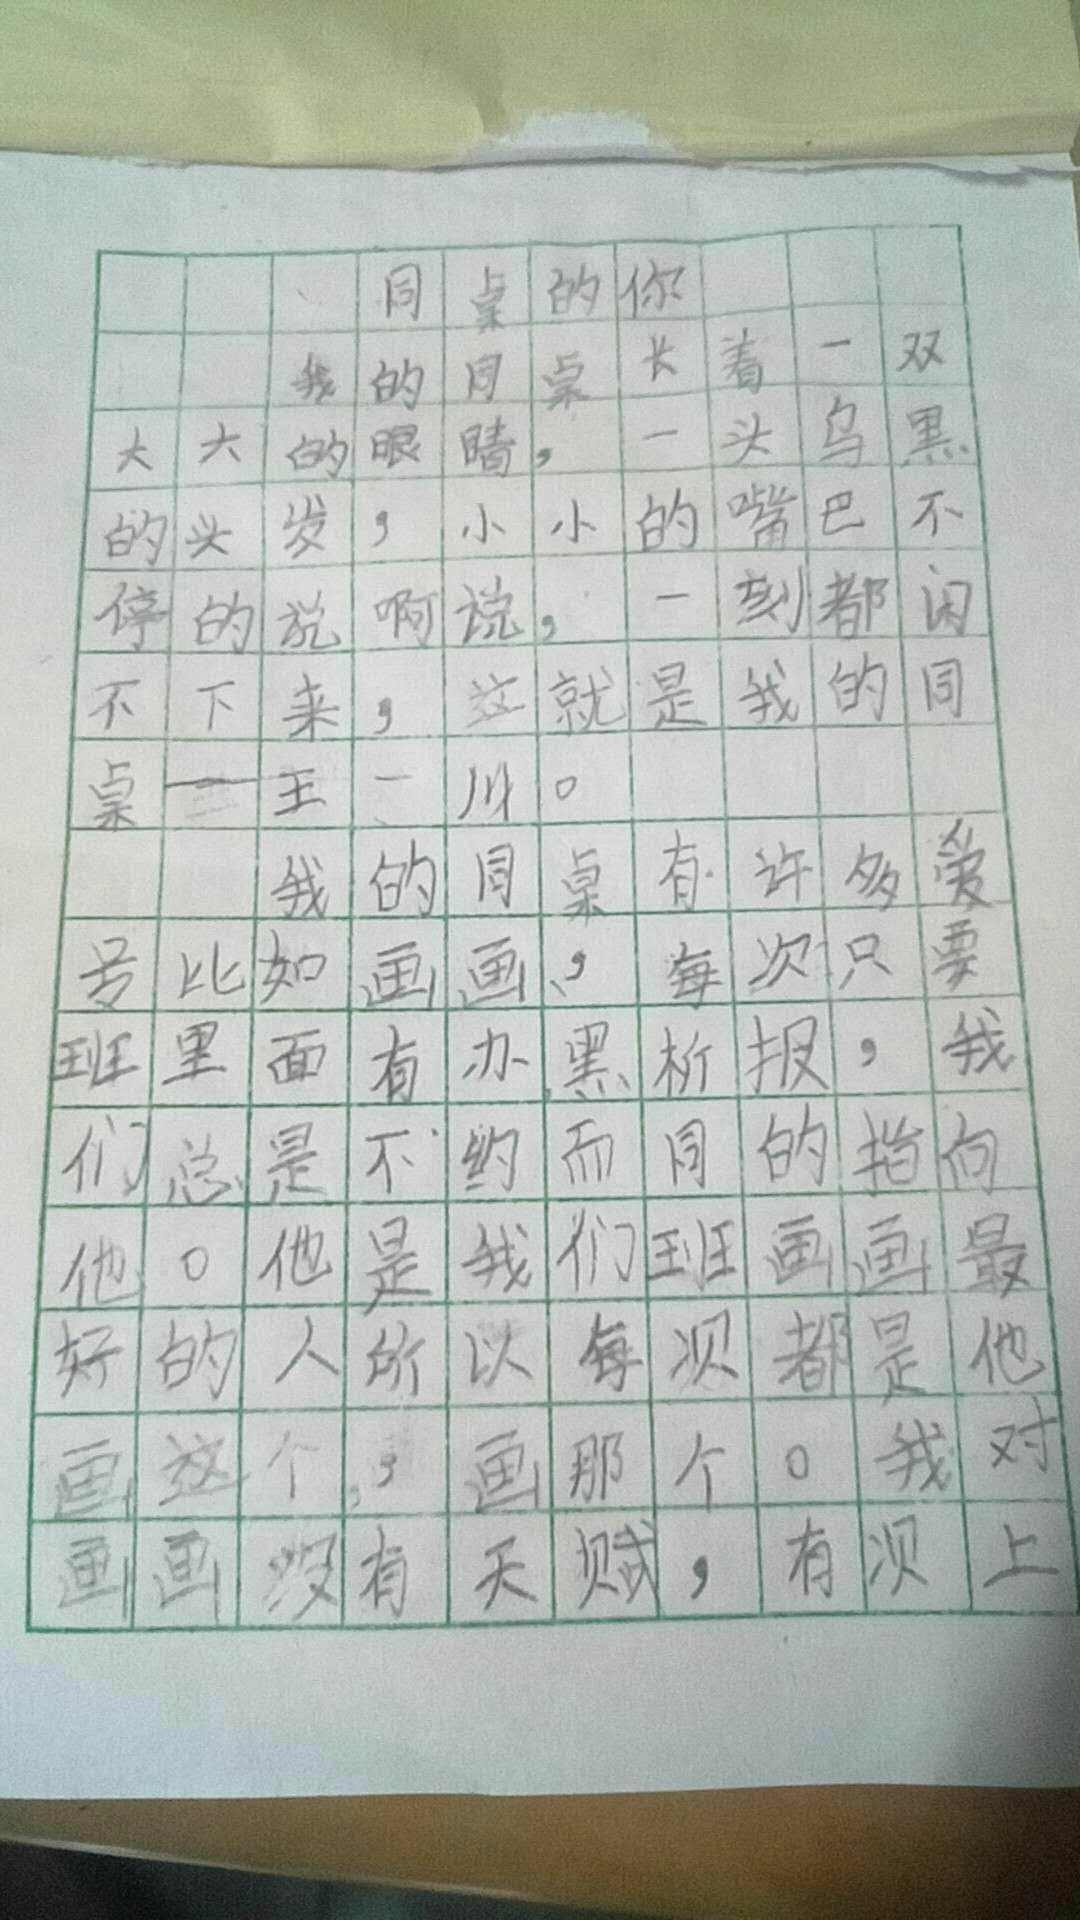 同桌的你
我的同桌长着一双
大大的眼睛，一头乌黑
的头发，小小的嘴巴不
停的说啊说，一刻都闲
不下来，这就是我的同
桌一王一川。
我的同桌有许多爱
号比如画画，每次只要
班里面有办黑析报，我
们总是不约而同的指向
他。他是我们班画画最
好的人所以每次都是他
画这个，画那个。我对
画画没有天赋，有次上